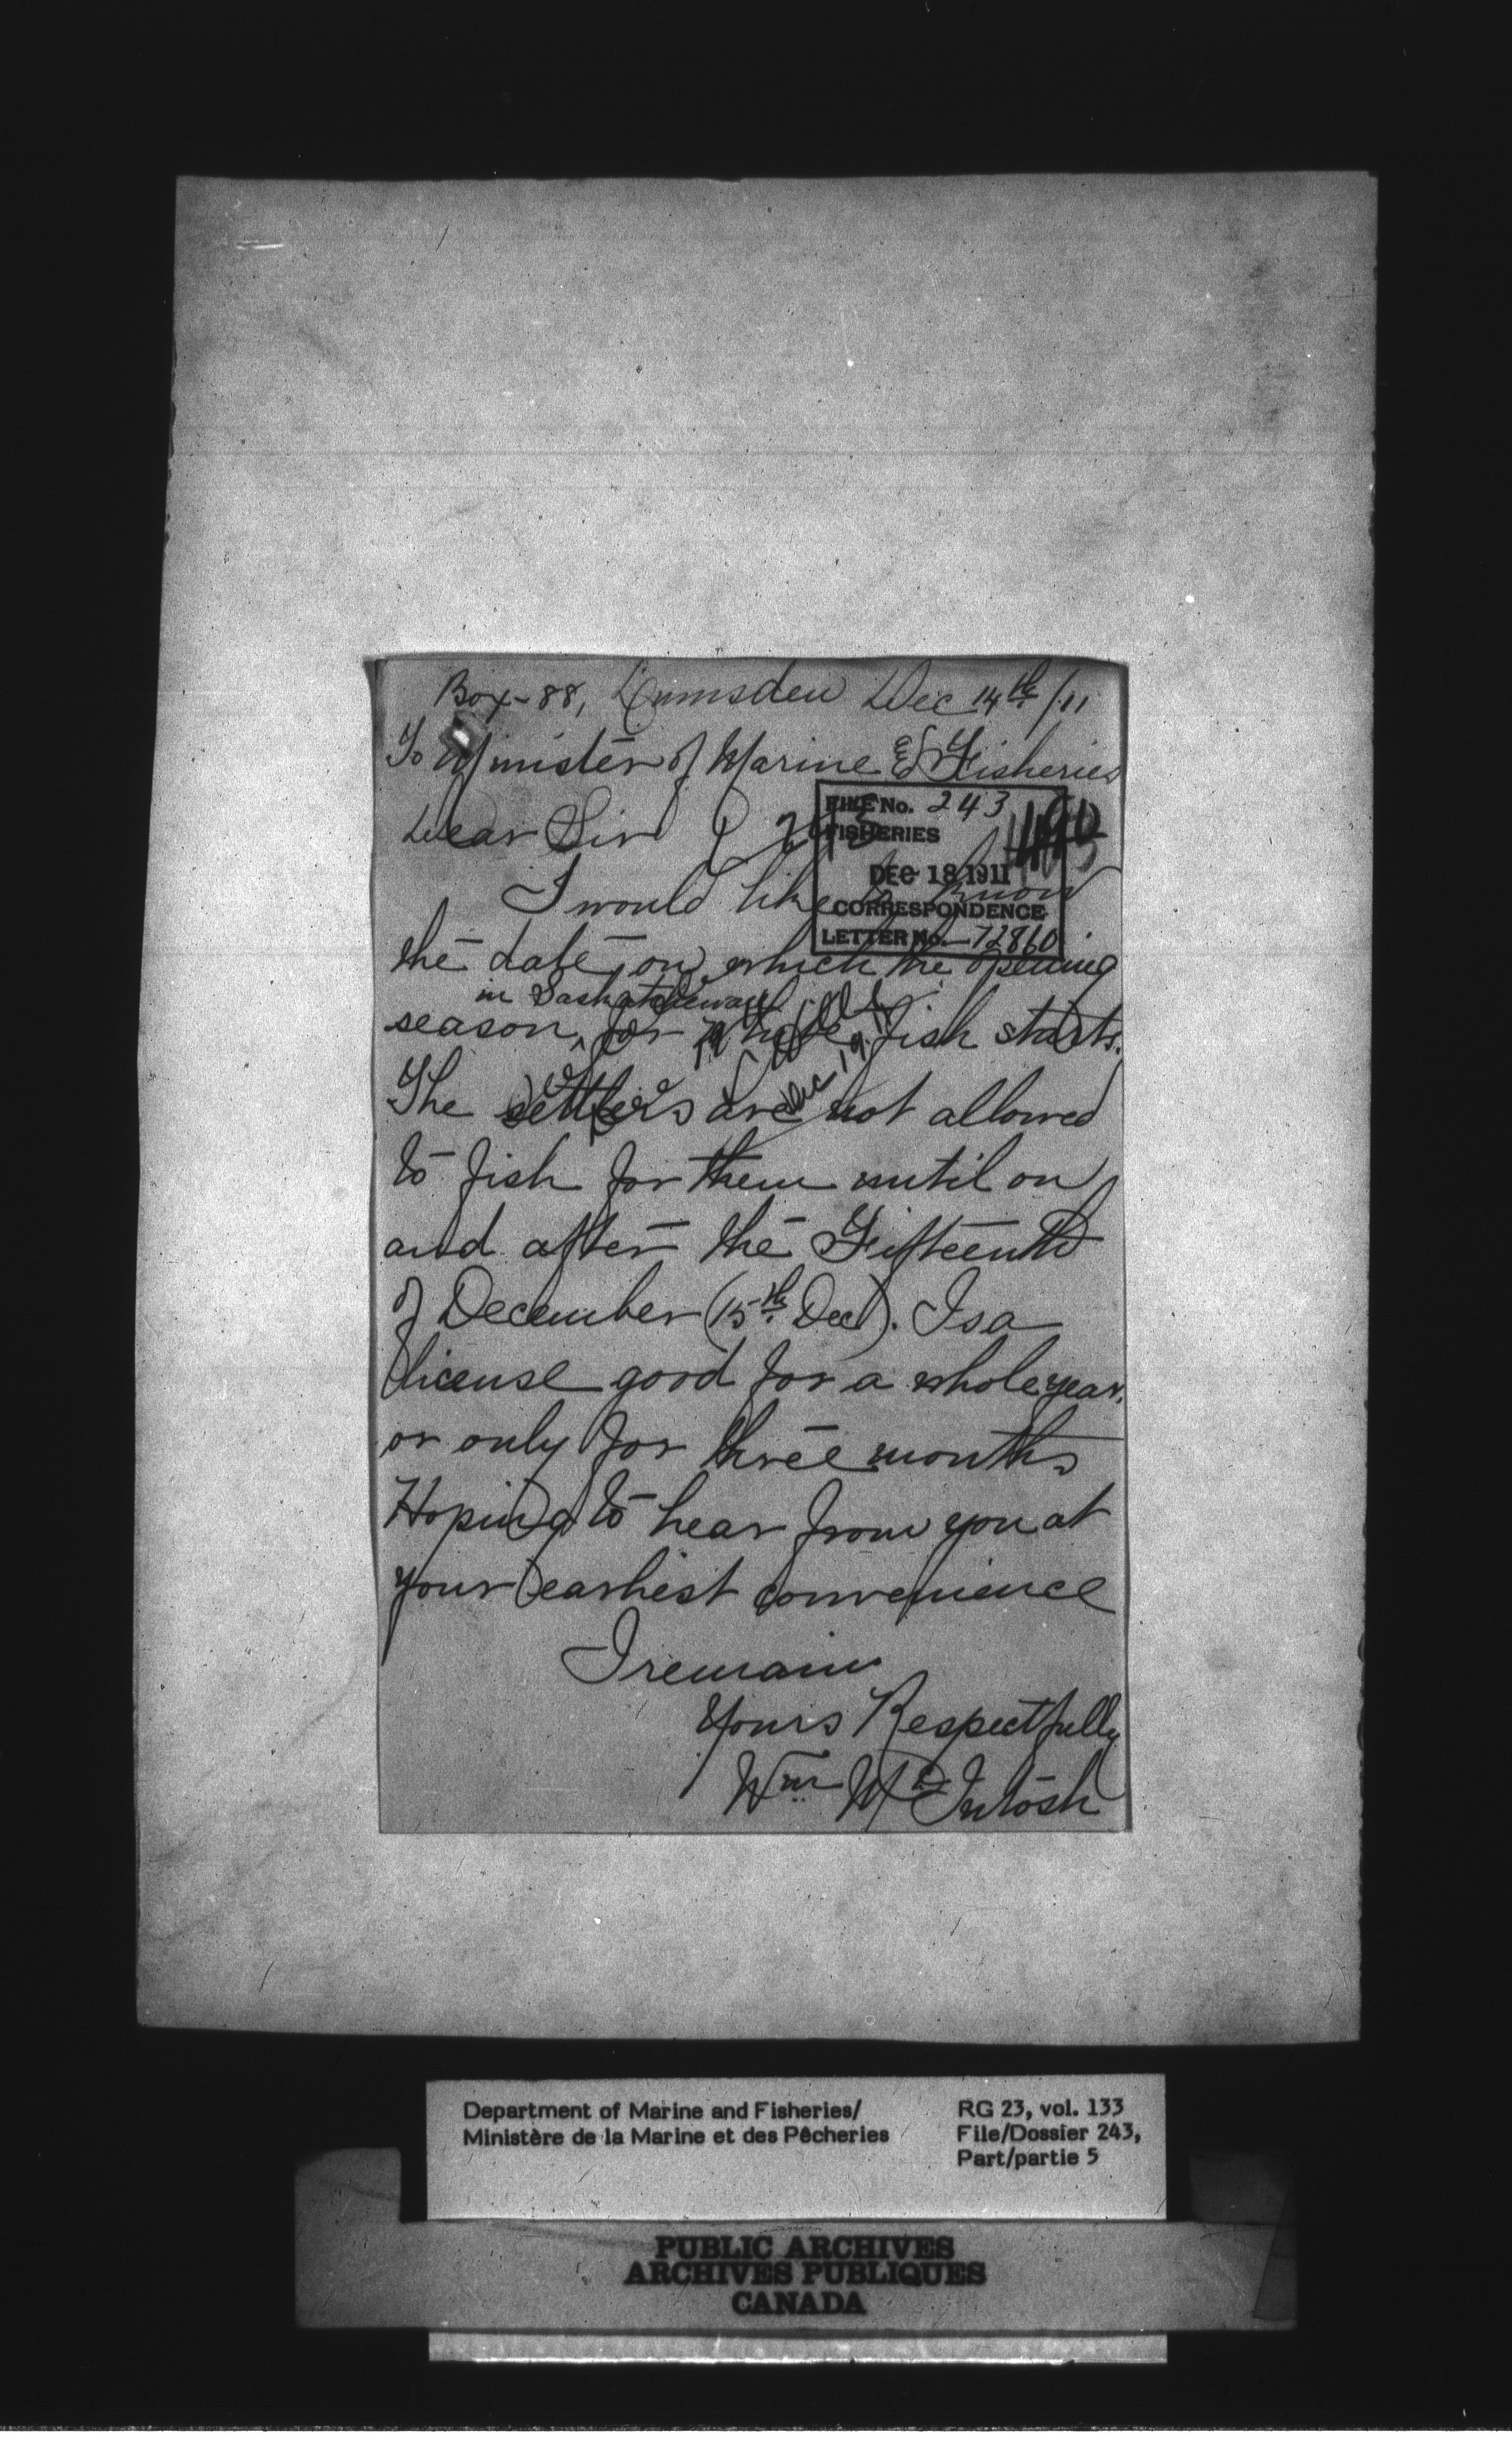 Box-88, Lumsden Dec 14th/11
To Minister of Marine & Fisheries
Dear Sir
FILE No. 243
FISHERIES
DEC 18 1911
CORRESPONDENCE
LETTER No. 72860
I would like to know
the date, on which the opening
in Saskatchewan
season, for white fish starts.
The settlers are not allowed
to fish for them until on
and after the Fifteenth
of December (15th Dec). Is a
license good for a whole year,
or only for three months
Hoping to hear from you at
your earliest convenience
I remain
Yours Respectfully
Wm McIntosh
Department of Marine and Fisheries/
Ministère de la Marine et des Pêcheries
RG 23, vol. 133
File/Dossier 243,
Part/partie 5
PUBLIC ARCHIVES
ARCHIVES PUBLIQUES
CANADA